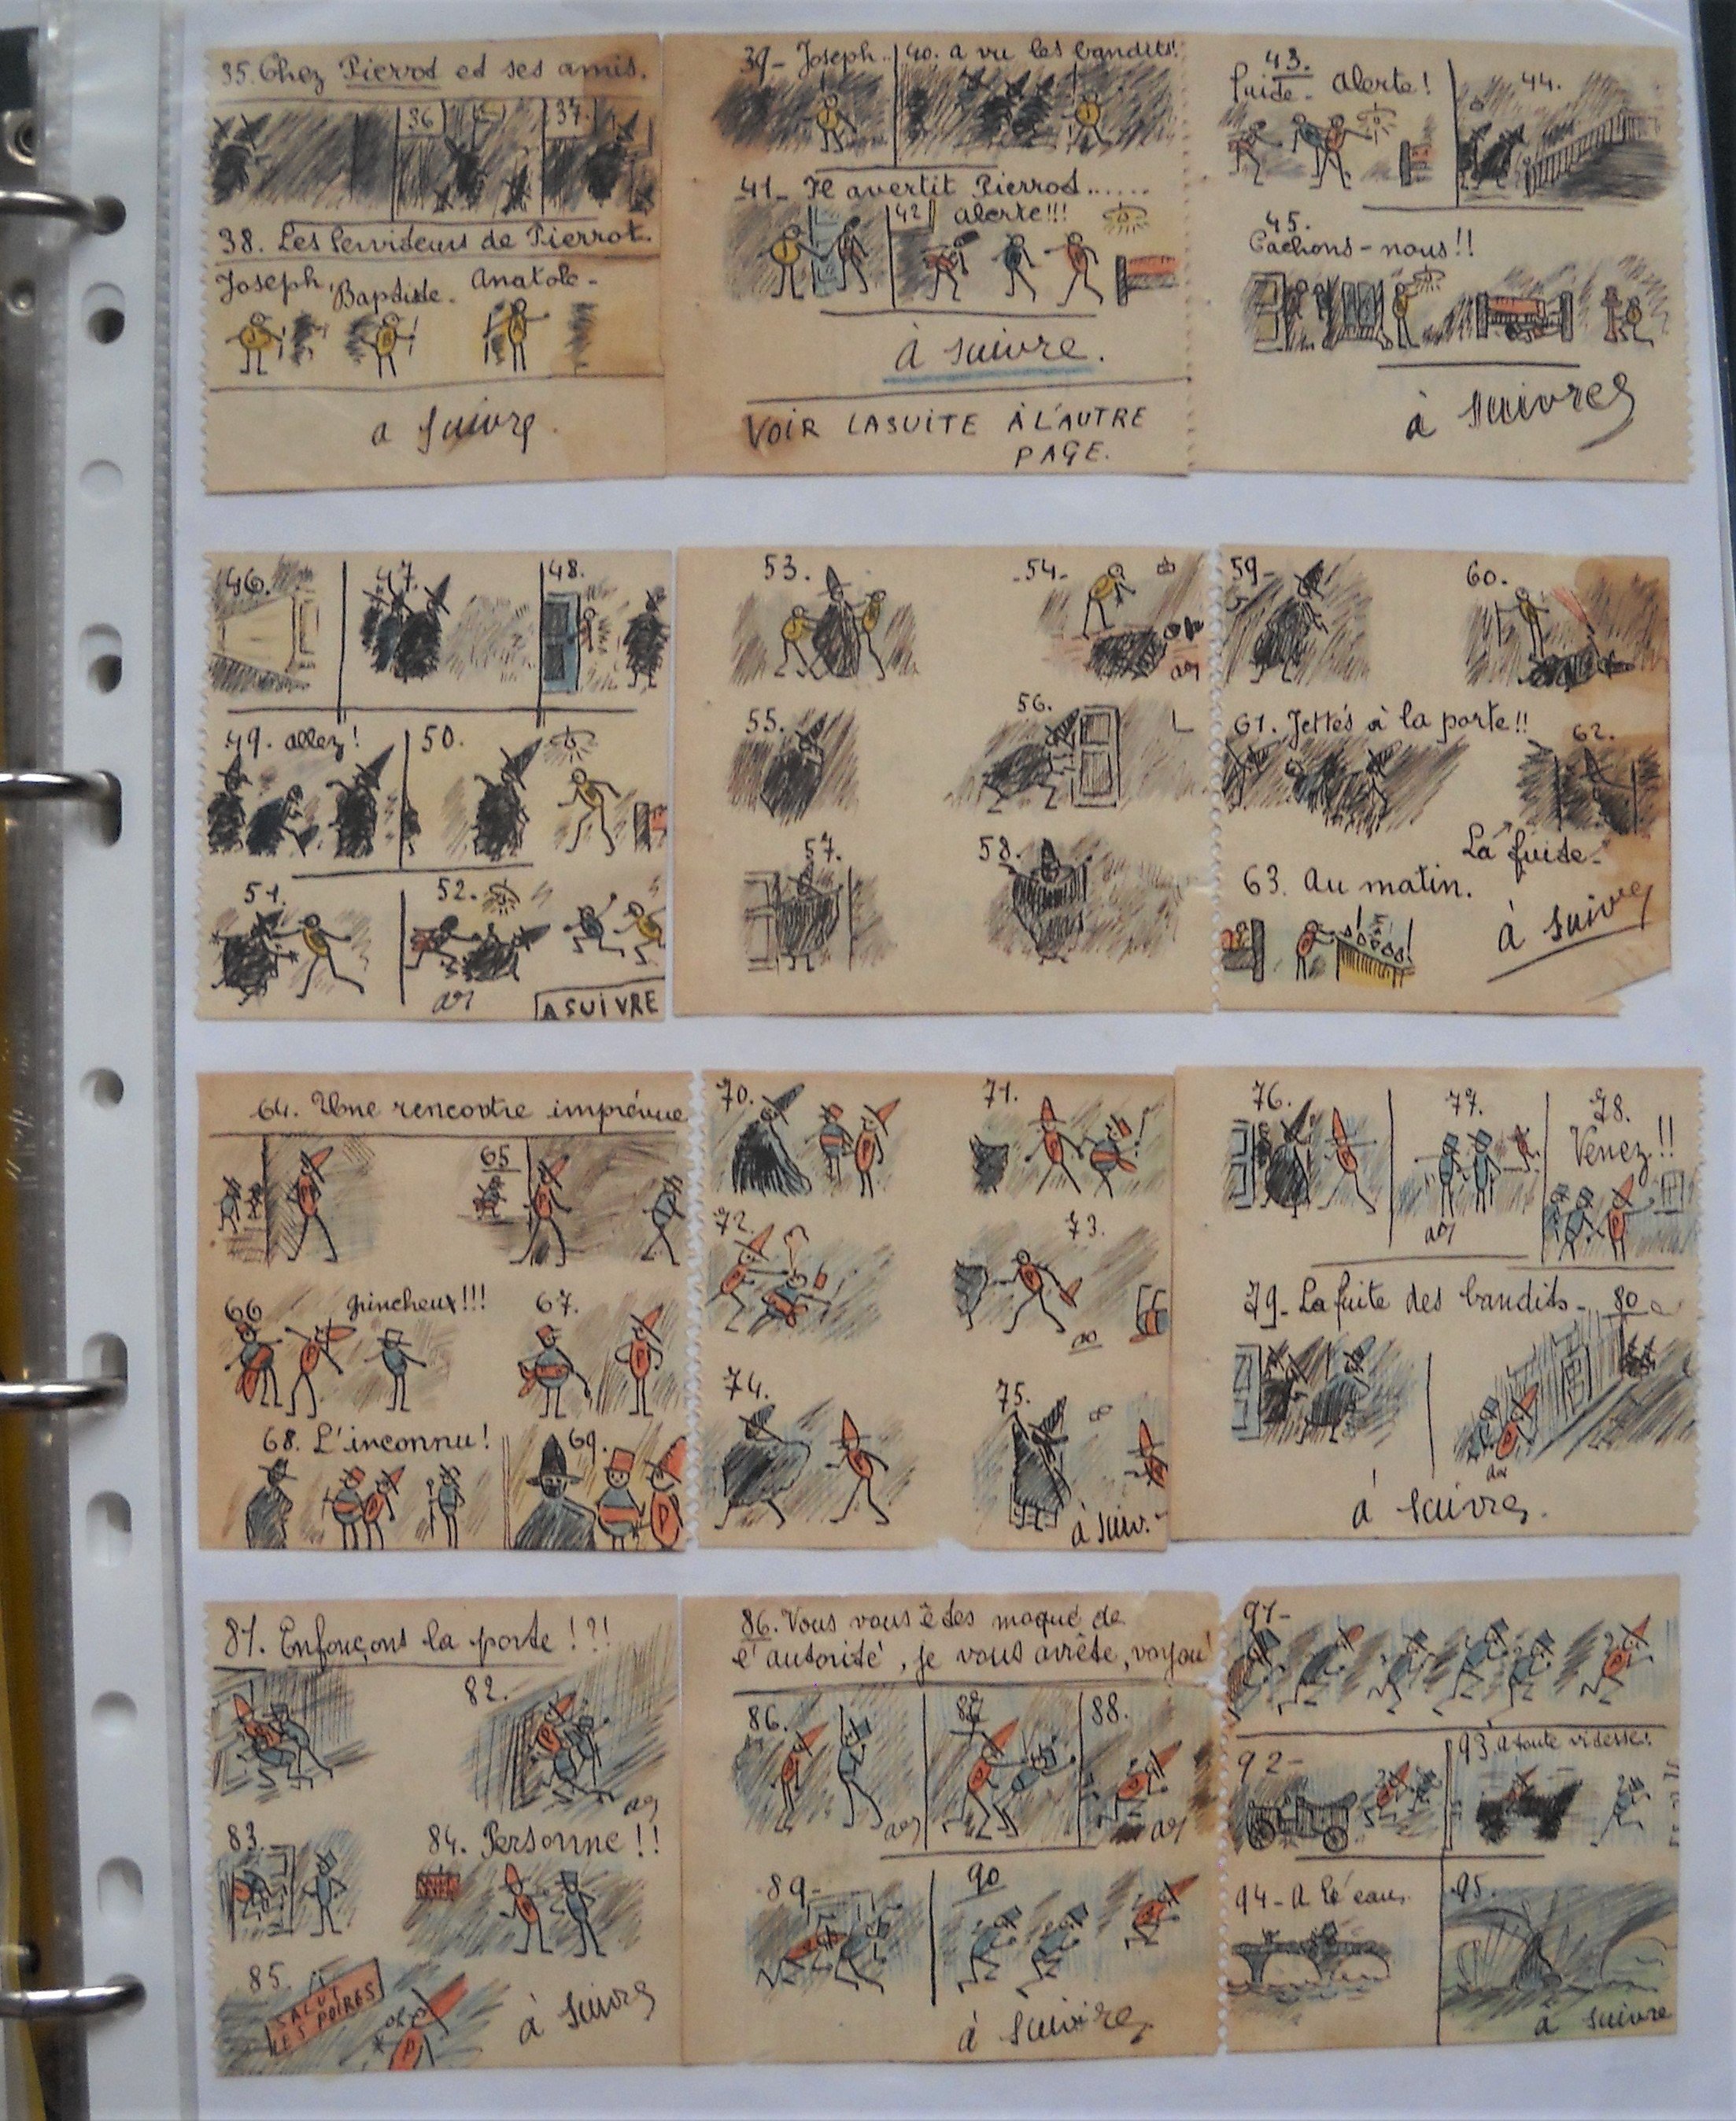 35. Chez Pierrot et ses amis.
36
37.
38. Les Serviteurs de Pierrot.
Joseph, Baptiste. Anatole-
a suivre.
39- Joseph..
40. a vu les bandits!
-41- Il avertit Pierrot......
42
alerte!!!
à suivre.
VOIR LA SUITE À L'AUTRE
PAGE.
43.
alerte!
44.
45.
Cachons-nous!!
à suivre
46.
47.
48.
49. allez!
50.
51.
52.
A SUIVRE
53.
-54-
55.
56.
57.
58.
59-
60.
61. Jettés à la porte!!
62.
La fuite-
63. Au matin.
à suivre
64. Une rencontre imprévue
65
66
grincheux!!!
67.
68. L'inconnu!
69.
P
70.
71.
72.
73.
74.
75.
à suiv.-
76.
77.
78.
Venez!!
79- La fuite des bandits-
80
à suivre.
81. Enfonçons la porte!?!
82.
83.
84. Personne!!
85.
SALUT
LES POIRES
P
à suivre
86. Vous vous êtes moqué de
l'autorité, je vous arrête, voyou!
86.
87
88.
-89-
90
à suivre
91-
92-
93. A toute vitesse!
94- A l'eau.
95.
à suivre